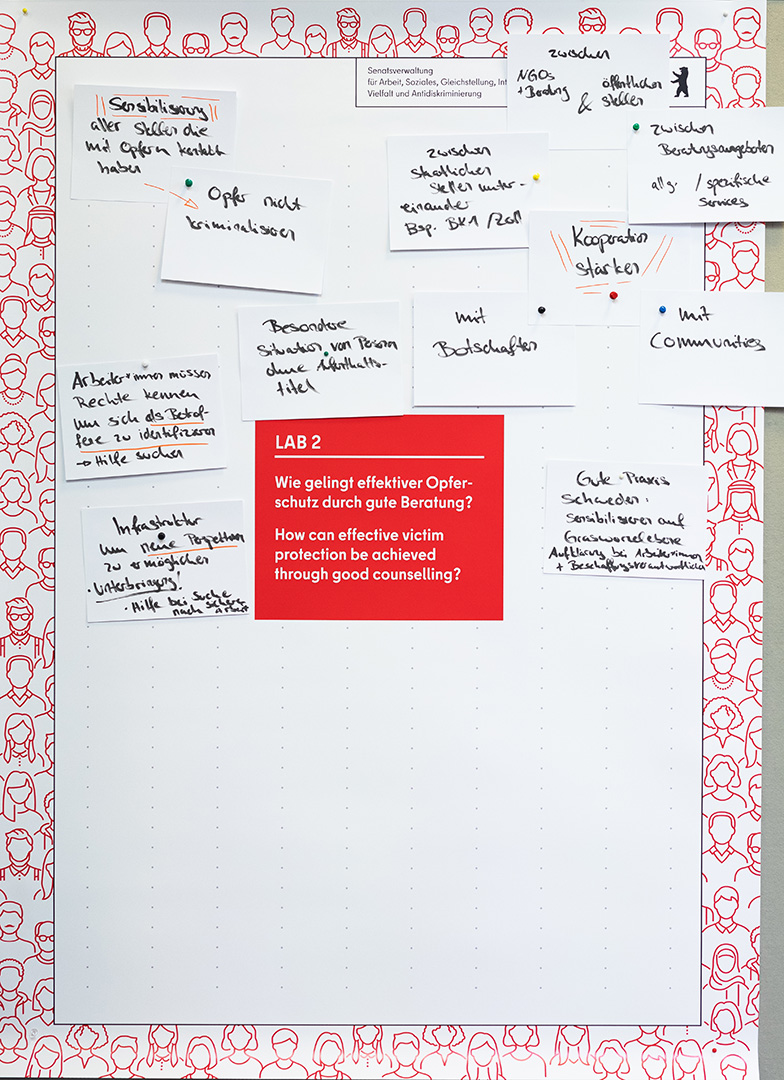 Senatsverwaltung
für Arbeit, Soziales, Gleichstellung, Int
Vielfalt und Antidiskriminierung
zwischen
NGOs
+ Beratung & öffentlichen
stellen
zwischen
Beratungsangeboten
allg. / spezifische
Services
|| Sensibilisierung ||
aller Stellen die
mit Opfern Kontakt
haben
→ Opfer nicht
kriminalisieren
zwischen
staatlichen
Stellen unter-
einander
Bsp. BKA / Zoll
Kooperation
stärken
mit
Botschaften
mit
Communities
Besondere
Situation von Personen
ohne Aufenthalts-
titel
Arbeiter*innen müssen
Rechte kennen
um sich als Betrof-
fene zu identifizieren
→ Hilfe suchen
Infrastruktur
um neue Perspektiven
zu ermöglichen
• Unterbringung!
• Hilfe bei Suche
nach sicherer Arbeit
LAB 2
Wie gelingt effektiver Opfer-
schutz durch gute Beratung?
How can effective victim
protection be achieved
through good counselling?
Gute Praxis
Schweden:
Sensibilisieren auf
Graswurzelebene
Aufklärung bei Arbeiter*innen
+ Beschaffungsverantwortlichen